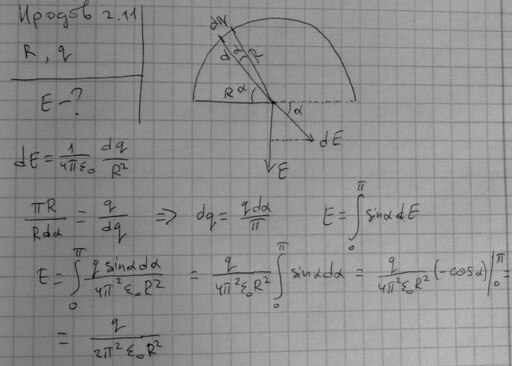 Иродов 2.11
R, q
E - ?
dN
d
α
R
R α
α
dE
E
dE = 1/(4πε₀) dq/R²
πR/(Rdα) = q/dq => dq = qdα/π E = ∫₀^π sinα dE
E = ∫₀^π (q sinα dα)/(4π²ε₀R²) = q/(4π²ε₀R²) ∫₀^π sinα dα = q/(4π²ε₀R²) (-cosα)|₀^π =
= q/(2π²ε₀R²)